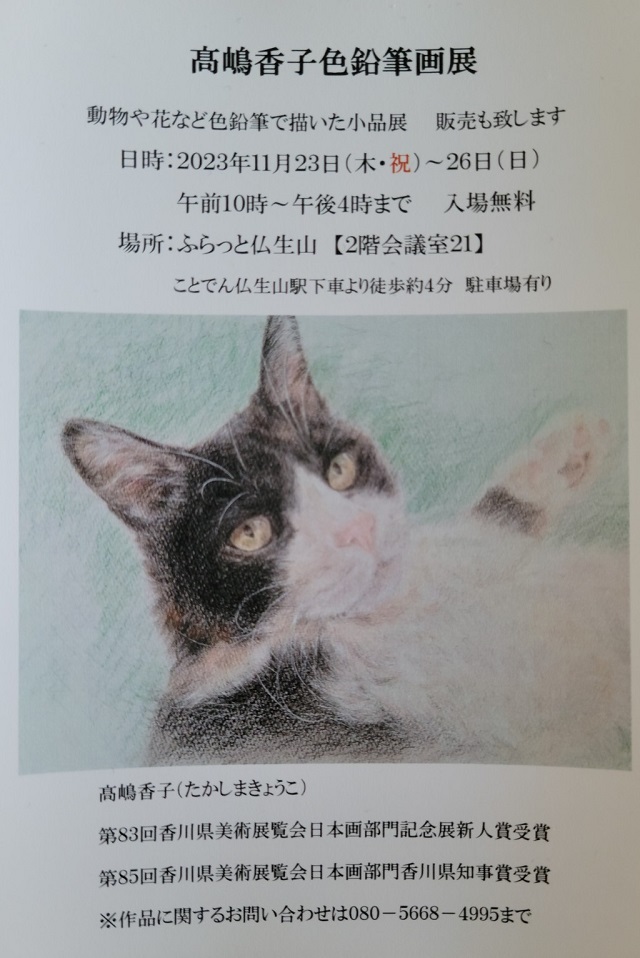 髙嶋香子色鉛筆画展
動物や花など色鉛筆で描いた小品展　販売も致します
日時：2023年11月23日（木・祝）～26日（日）
午前10時～午後4時まで　入場無料
場所：ふらっと仏生山【2階会議室21】
ことでん仏生山駅下車より徒歩約4分　駐車場有り
髙嶋香子（たかしまきょうこ）
第83回香川県美術展覧会日本画部門記念展新人賞受賞
第85回香川県美術展覧会日本画部門香川県知事賞受賞
※作品に関するお問い合わせは080－5668－4995まで